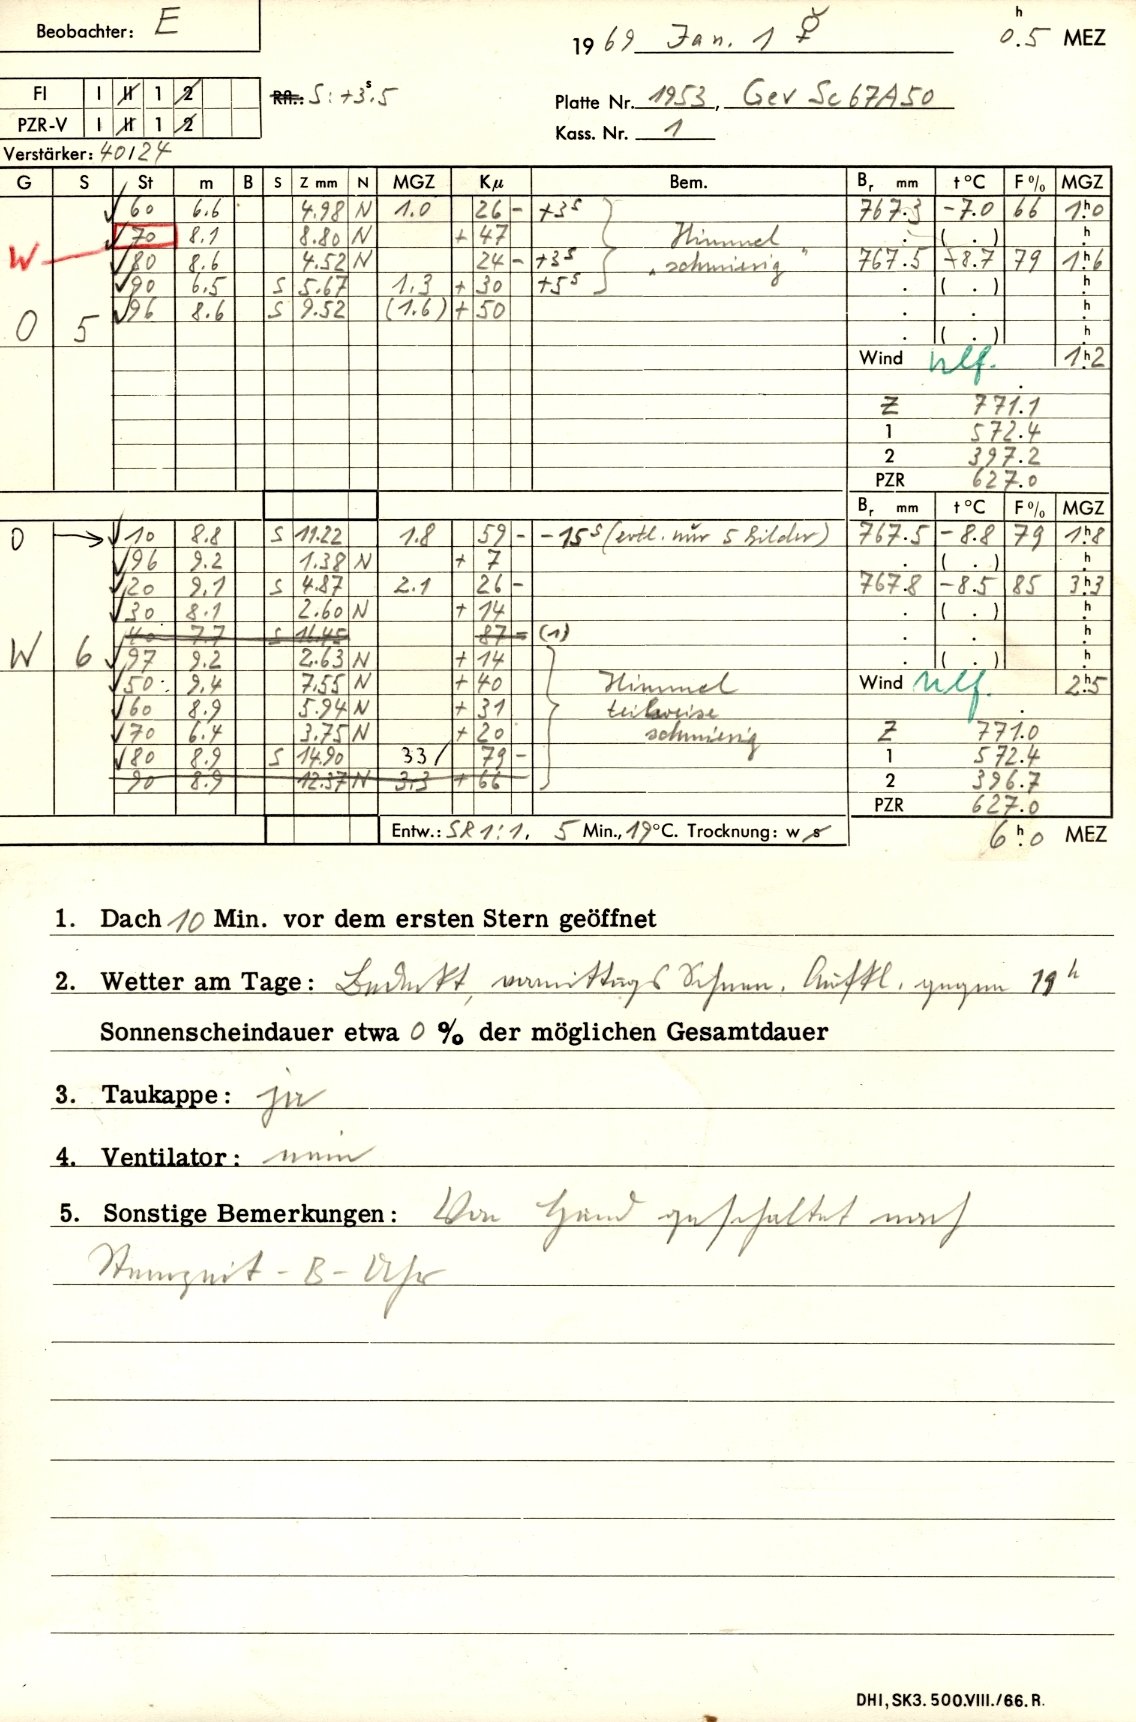 Beobachter: E
1969 Jan. 1 ☿ 0.5ʰ MEZ
FI I II 1 2
Rfl.: S: +3ˢ.5
Platte Nr. 1953, Gev Sc67A50
PZR-V I II 1 2
Kass. Nr. 1
Verstärker: 40124
G S St m B S Z mm N MGZ Kμ Bem. Bᵣ mm t°C F% MGZ
✓60 6.6 4.98 N 1.0 26 - +3ˢ 767.3 -7.0 66 1ʰ.0
✓70 8.1 8.80 N + 47 Himmel . ( . ) ʰ.
W ✓80 8.6 4.52 N 24 - +3ˢ „schmierig" 767.5 -8.7 79 1ʰ.6
✓90 6.5 S 5.67 1.3 + 30 +5ˢ . ( . ) ʰ.
O 5 ✓96 8.6 S 9.52 (1.6) + 50 . . ʰ.
. ( . ) ʰ.
Wind nlf. 1ʰ.2
Z 771.1
1 572.4
2 397.2
PZR 627.0
Bᵣ mm t°C F% MGZ
O → ✓10 8.8 S 11.22 1.8 59 - -15ˢ (evtl. nur 5 Bilder) 767.5 -8.8 79 1ʰ.8
✓96 9.2 1.38 N + 7 . ( . ) ʰ.
✓20 9.1 S 4.87 2.1 26 - 767.8 -8.5 85 3ʰ.3
✓30 8.1 2.60 N + 14 . ( . ) ʰ.
40 7.7 S 16.45 87 - (1) . . ʰ.
W 6 ✓97 9.2 2.63 N + 14 . ( . ) ʰ.
✓50 9.4 7.55 N + 40 Himmel Wind nlf. 2ʰ.5
✓60 8.9 5.94 N + 31 teilweise
✓70 6.4 3.75 N + 20 schmierig Z 771.0
✓80 8.9 S 14.90 33/ 79 - 1 572.4
90 8.9 12.37 N 3.3 + 66 2 396.7
PZR 627.0
Entw.: SR 1:1. 5 Min., 19°C. Trocknung: w s 6ʰ.0 MEZ
1. Dach 10 Min. vor dem ersten Stern geöffnet
2. Wetter am Tage: Bedeckt, vormittags Schnee. Aufkl. gegen 19ʰ
Sonnenscheindauer etwa 0 % der möglichen Gesamtdauer
3. Taukappe: ja
4. Ventilator: nein
5. Sonstige Bemerkungen: Von Hand geschaltet nach
Sternzeit - B - Uhr
DHI, SK3. 500.VIII./66. R.